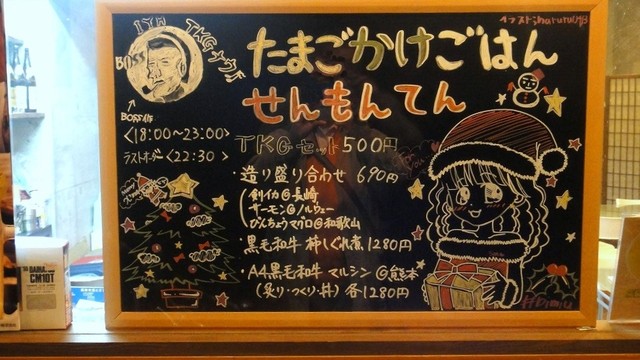 たまごかけごはん
せんもんてん
BOSS
↑
BOSS作
<18:00～23:00>
ラストオーダー<22:30>
TKGセット500円
・造り盛り合わせ 690円
剣イカ@長崎
サーモン@ノルウェー
びんちょうマグロ@和歌山
・黒毛和牛 時しぐれ煮 1280円
・A4黒毛和牛 マルシン @熊本
(炙り・つくり・丼) 各1280円